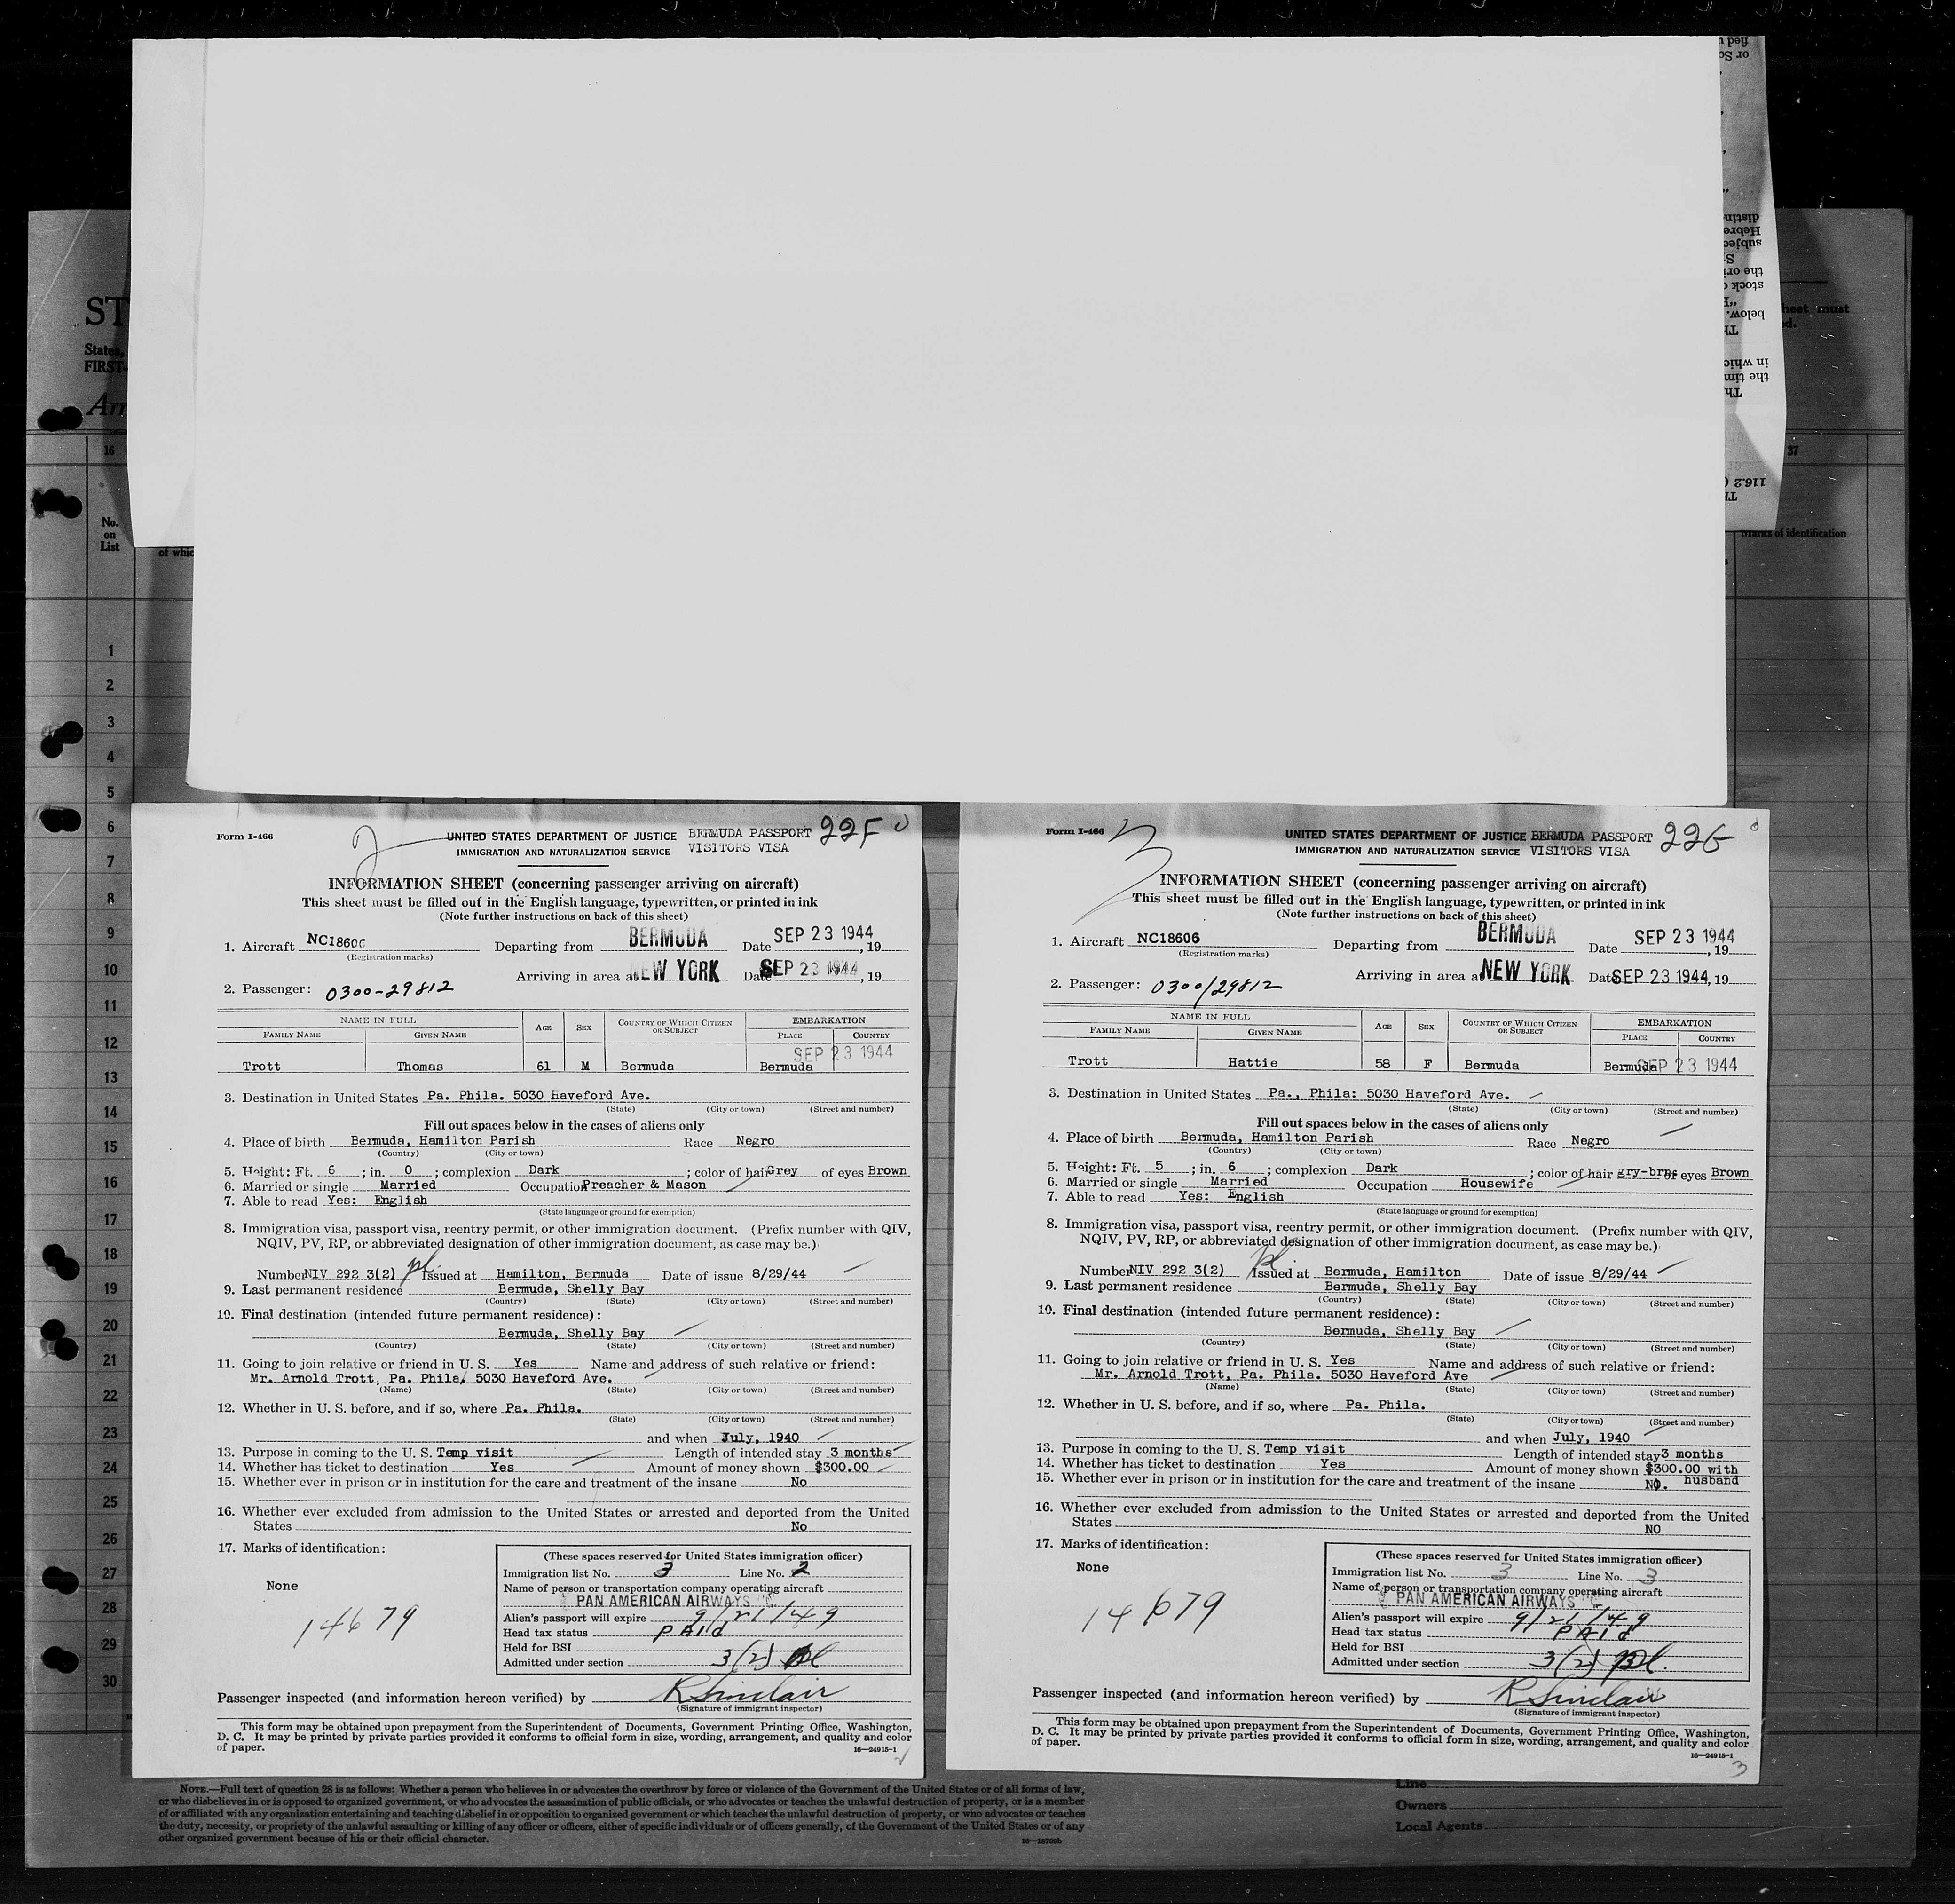 fied u
or Sc
distin
Hebre
subjec
the ori
stock o
below.
in whic
the tim
116.2 (
ST
States,
FIRST-
Arr
heet must
d.
16
37
No.
on
List
of whic
Marks of identification
1
2
3
4
5
6
7
8
9
10
11
12
13
14
15
16
17
18
19
20
21
22
23
24
25
26
27
28
29
30
Form I-466
2
UNITED STATES DEPARTMENT OF JUSTICE BERMUDA PASSPORT 22F
IMMIGRATION AND NATURALIZATION SERVICE VISITORS VISA
INFORMATION SHEET (concerning passenger arriving on aircraft)
This sheet must be filled out in the English language, typewritten, or printed in ink
(Note further instructions on back of this sheet)
1. Aircraft NC18606 Departing from BERMUDA Date SEP 23 1944, 19
(Registration marks)
Arriving in area at NEW YORK Date SEP 23 1944, 19
2. Passenger: 0300-29812
NAME IN FULL AGE SEX COUNTRY OF WHICH CITIZEN OR SUBJECT EMBARKATION
FAMILY NAME GIVEN NAME PLACE COUNTRY
SEP 23 1944
Trott Thomas 61 M Bermuda Bermuda
3. Destination in United States Pa. Phila. 5030 Haveford Ave.
(State) (City or town) (Street and number)
Fill out spaces below in the cases of aliens only
4. Place of birth Bermuda, Hamilton Parish Race Negro
(Country) (City or town)
5. Height: Ft. 6 ; in. 0 ; complexion Dark ; color of hair Grey of eyes Brown
6. Married or single Married Occupation Preacher & Mason
7. Able to read Yes: English
(State language or ground for exemption)
8. Immigration visa, passport visa, reentry permit, or other immigration document. (Prefix number with QIV,
NQIV, PV, RP, or abbreviated designation of other immigration document, as case may be.)
Number NIV 292 3(2) Issued at Hamilton, Bermuda Date of issue 8/29/44
9. Last permanent residence Bermuda, Shelly Bay
(Country) (State) (City or town) (Street and number)
10. Final destination (intended future permanent residence):
Bermuda, Shelly Bay
(Country) (State) (City or town) (Street and number)
11. Going to join relative or friend in U. S. Yes Name and address of such relative or friend:
Mr. Arnold Trott, Pa. Phila. 5030 Haveford Ave.
(Name) (State) (City or town) (Street and number)
12. Whether in U. S. before, and if so, where Pa. Phila.
(State) (City or town) (Street and number)
and when July, 1940
13. Purpose in coming to the U. S. Temp visit Length of intended stay 3 months
14. Whether has ticket to destination Yes Amount of money shown $300.00
15. Whether ever in prison or in institution for the care and treatment of the insane No
16. Whether ever excluded from admission to the United States or arrested and deported from the United
States No
17. Marks of identification:
None
14679
(These spaces reserved for United States immigration officer)
Immigration list No. 3 Line No. 2
Name of person or transportation company operating aircraft
PAN AMERICAN AIRWAYS
Alien's passport will expire 9/21/49
Head tax status PAId
Held for BSI
Admitted under section 3(2)
Passenger inspected (and information hereon verified) by R Sinclair
(Signature of immigrant inspector)
This form may be obtained upon prepayment from the Superintendent of Documents, Government Printing Office, Washington,
D. C. It may be printed by private parties provided it conforms to official form in size, wording, arrangement, and quality and color
of paper.
16—24915-1
Form I-466
3
UNITED STATES DEPARTMENT OF JUSTICE BERMUDA PASSPORT 22G
IMMIGRATION AND NATURALIZATION SERVICE VISITORS VISA
INFORMATION SHEET (concerning passenger arriving on aircraft)
This sheet must be filled out in the English language, typewritten, or printed in ink
(Note further instructions on back of this sheet)
1. Aircraft NC18606 Departing from BERMUDA Date SEP 23 1944, 19
(Registration marks)
Arriving in area at NEW YORK Date SEP 23 1944, 19
2. Passenger: 0300/29812
NAME IN FULL AGE SEX COUNTRY OF WHICH CITIZEN OR SUBJECT EMBARKATION
FAMILY NAME GIVEN NAME PLACE COUNTRY
Trott Hattie 58 F Bermuda Bermuda SEP 23 1944
3. Destination in United States Pa., Phila: 5030 Haveford Ave.
(State) (City or town) (Street and number)
Fill out spaces below in the cases of aliens only
4. Place of birth Bermuda, Hamilton Parish Race Negro
(Country) (City or town)
5. Height: Ft. 5 ; in. 6 ; complexion Dark ; color of hair gry-brn of eyes Brown
6. Married or single Married Occupation Housewife
7. Able to read Yes: English
(State language or ground for exemption)
8. Immigration visa, passport visa, reentry permit, or other immigration document. (Prefix number with QIV,
NQIV, PV, RP, or abbreviated designation of other immigration document, as case may be.)
Number NIV 292 3(2) Issued at Bermuda, Hamilton Date of issue 8/29/44
9. Last permanent residence Bermuda, Shelly Bay
(Country) (State) (City or town) (Street and number)
10. Final destination (intended future permanent residence):
Bermuda, Shelly Bay
(Country) (State) (City or town) (Street and number)
11. Going to join relative or friend in U. S. Yes Name and address of such relative or friend:
Mr. Arnold Trott, Pa. Phila. 5030 Haveford Ave
(Name) (State) (City or town) (Street and number)
12. Whether in U. S. before, and if so, where Pa. Phila.
(State) (City or town) (Street and number)
and when July, 1940
13. Purpose in coming to the U. S. Temp visit Length of intended stay 3 months
14. Whether has ticket to destination Yes Amount of money shown $300.00 with
husband
15. Whether ever in prison or in institution for the care and treatment of the insane NO.
16. Whether ever excluded from admission to the United States or arrested and deported from the United
States NO
17. Marks of identification:
None
14679
(These spaces reserved for United States immigration officer)
Immigration list No. 3 Line No. 3
Name of person or transportation company operating aircraft
PAN AMERICAN AIRWAYS
Alien's passport will expire 9/21/49
Head tax status PAId
Held for BSI
Admitted under section 3(2)
Passenger inspected (and information hereon verified) by R Sinclair
(Signature of immigrant inspector)
This form may be obtained upon prepayment from the Superintendent of Documents, Government Printing Office, Washington,
D. C. It may be printed by private parties provided it conforms to official form in size, wording, arrangement, and quality and color
of paper.
16—24915-1
3
NOTE.—Full text of question 28 is as follows: Whether a person who believes in or advocates the overthrow by force or violence of the Government of the United States or of all forms of law,
or who disbelieves in or is opposed to organized government, or who advocates the assassination of public officials, or who advocates or teaches the unlawful destruction of property, or is a member
of or affiliated with any organization entertaining and teaching disbelief in or opposition to organized government or which teaches the unlawful destruction of property, or who advocates or teaches
the duty, necessity, or propriety of the unlawful assaulting or killing of any officer or officers, either of specific individuals or of officers generally, of the Government of the United States or of any
other organized government because of his or their official character.
Line
Owners
Local Agents